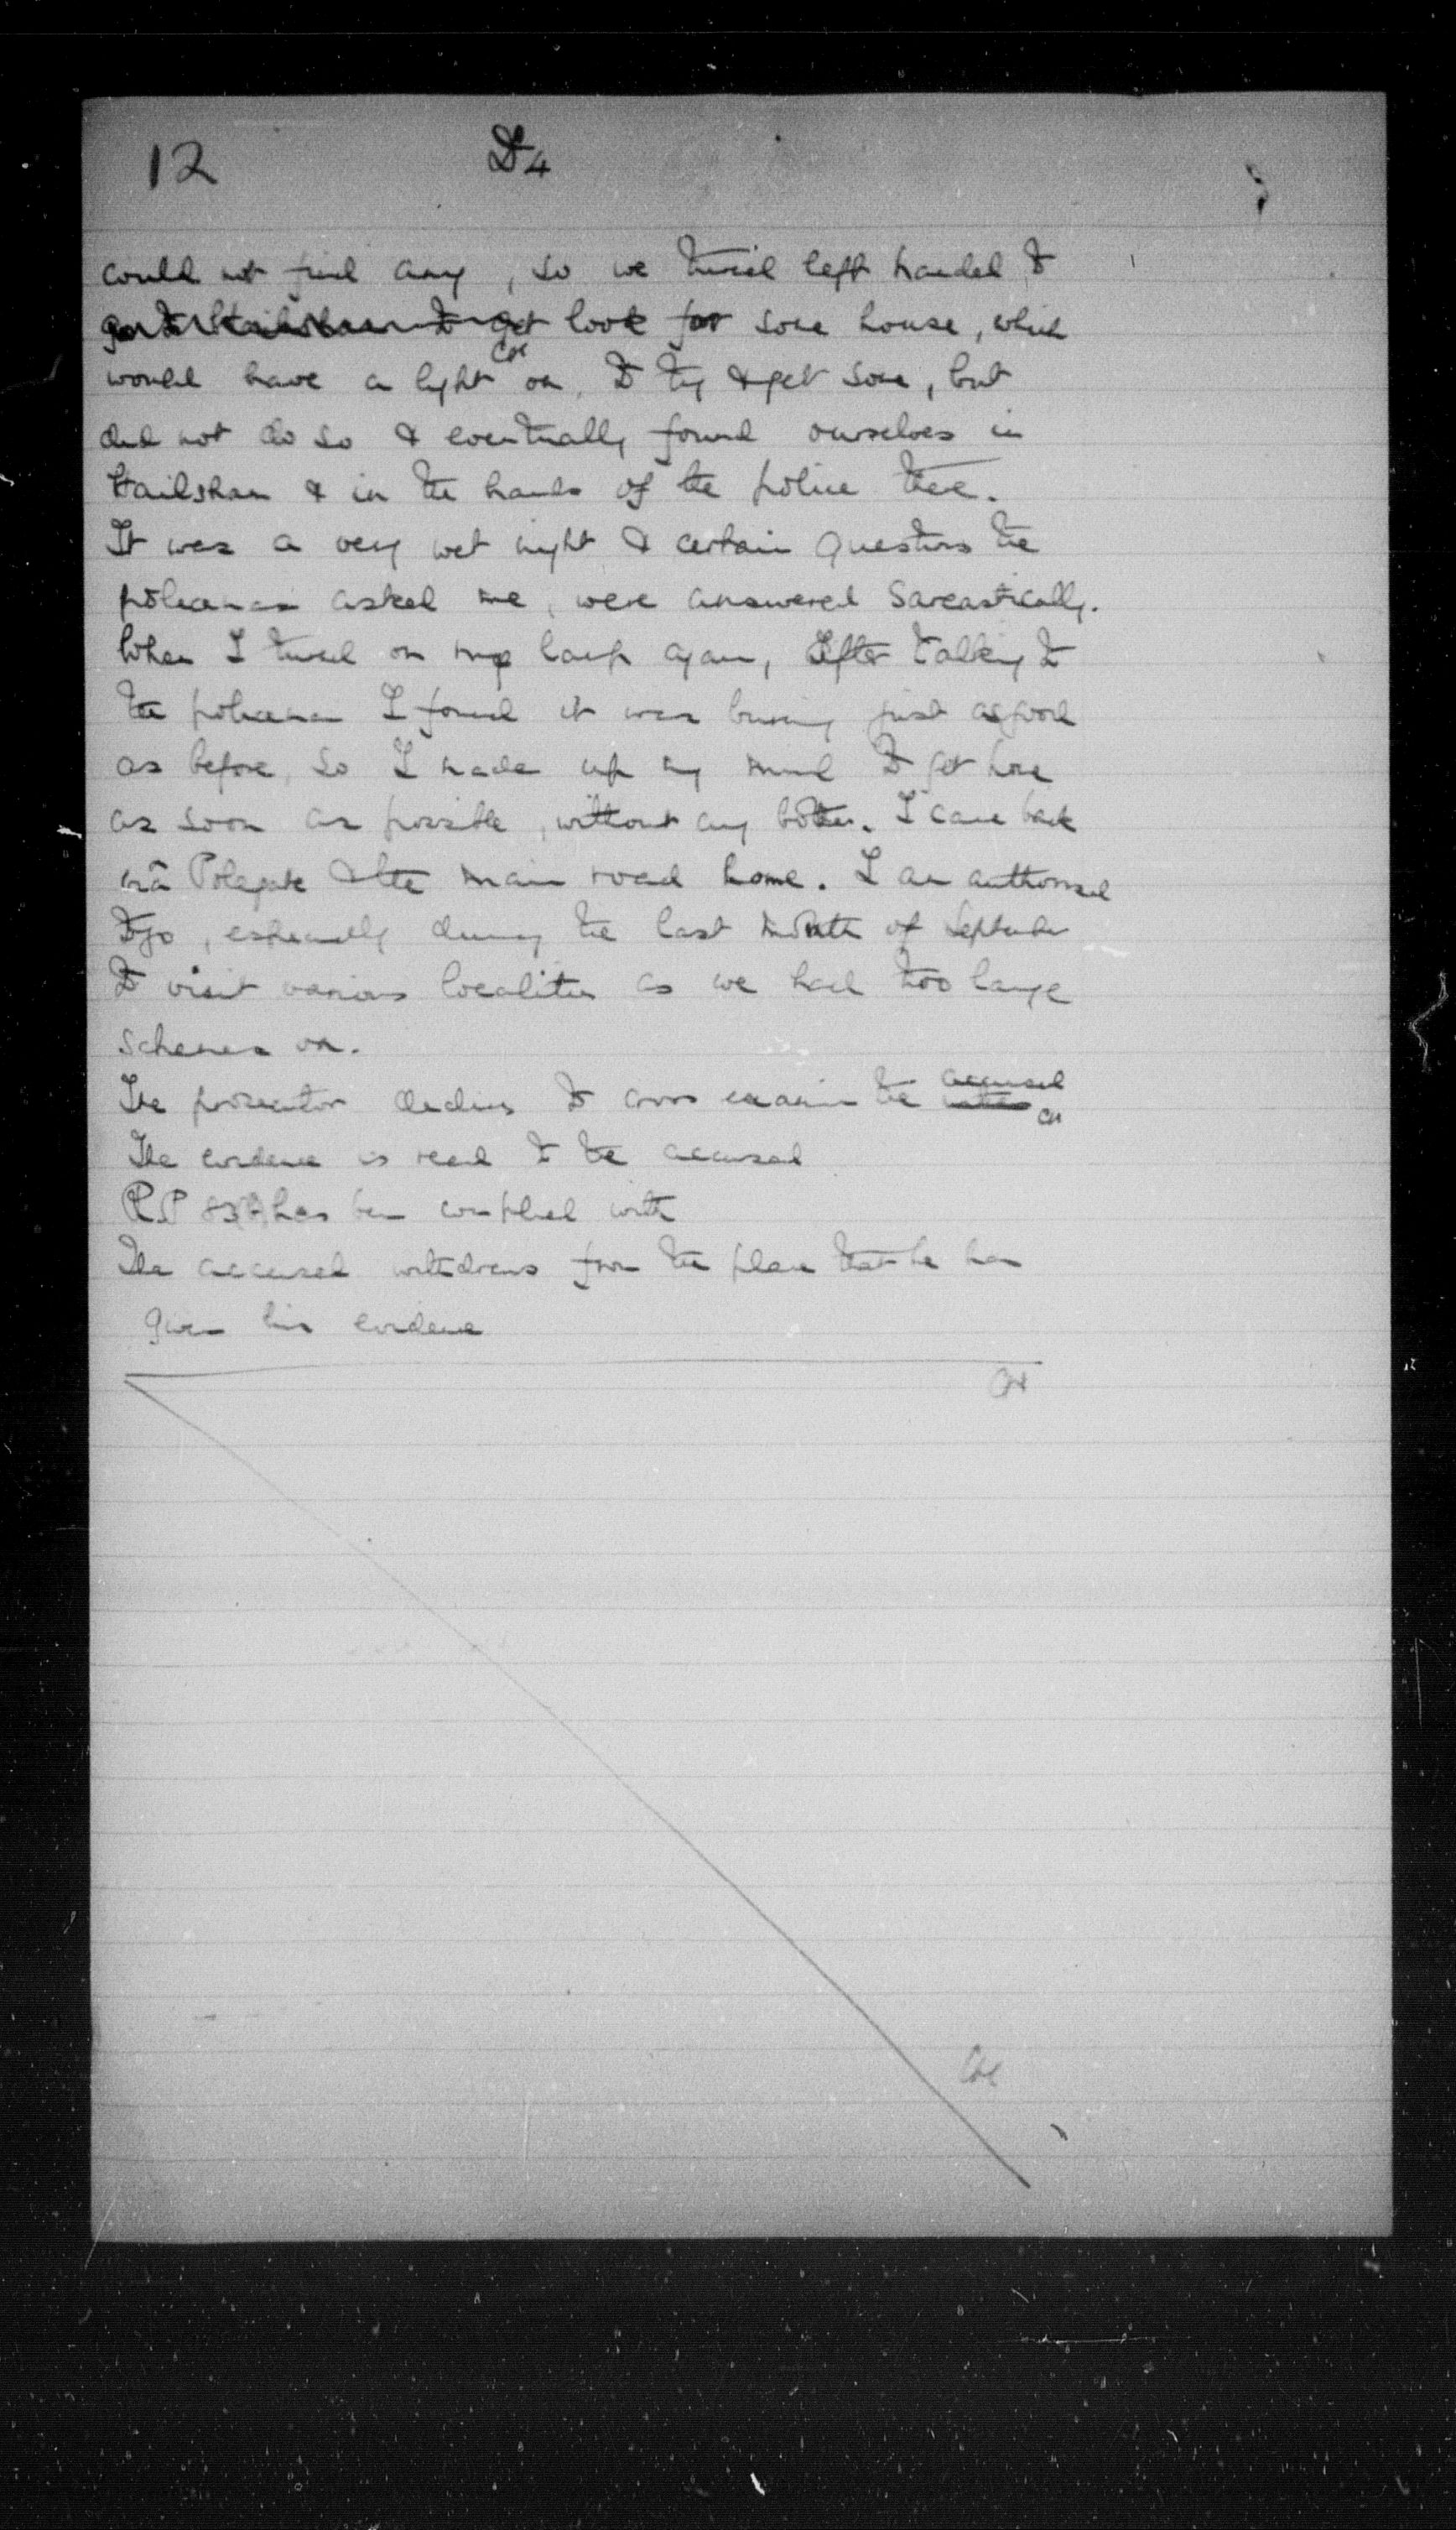 12 D4
could not find any, so we turned left handed to
go to Hailsham to get look for some house, which
would have a light on, to try & get some, but
did not do so & eventually found ourselves in
Hailsham & in the hands of the police there.
It was a very wet night & certain questions the
policeman asked me, were answered sarcastically.
When I turned on my lamp again, after talking to
the policeman I found it was burning just as good
as before, so I made up my mind to get home
as soon as possible, without any bother. I came back
via Polegate & the main road home. I am authorised
to go, especially during the last month of September
to visit various localities as we had two large
schemes on.
The prosecutor declines to cross examine the accused
The evidence is read to the accused
R.P 83(B) has been complied with
The accused withdraws from the place that he has
given his evidence